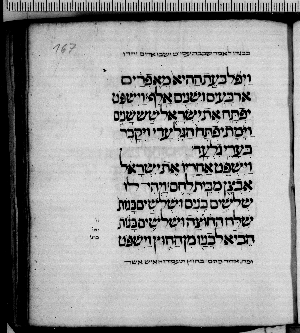 167
ויפל בעת ההיא מאפרים
ארבעים ושנים אלף וישפט
יפתח את ישראל שש שנים
וימת יפתח הגלעדי ויקבר
בערי גלעד
וישפט אחריו את ישראל
אבצן מבית לחם ויהי לו
שלשים בנים ושלשים בנות
שלח החוצה ושלשים בנות
הביא לבניו מן החוץ וישפט